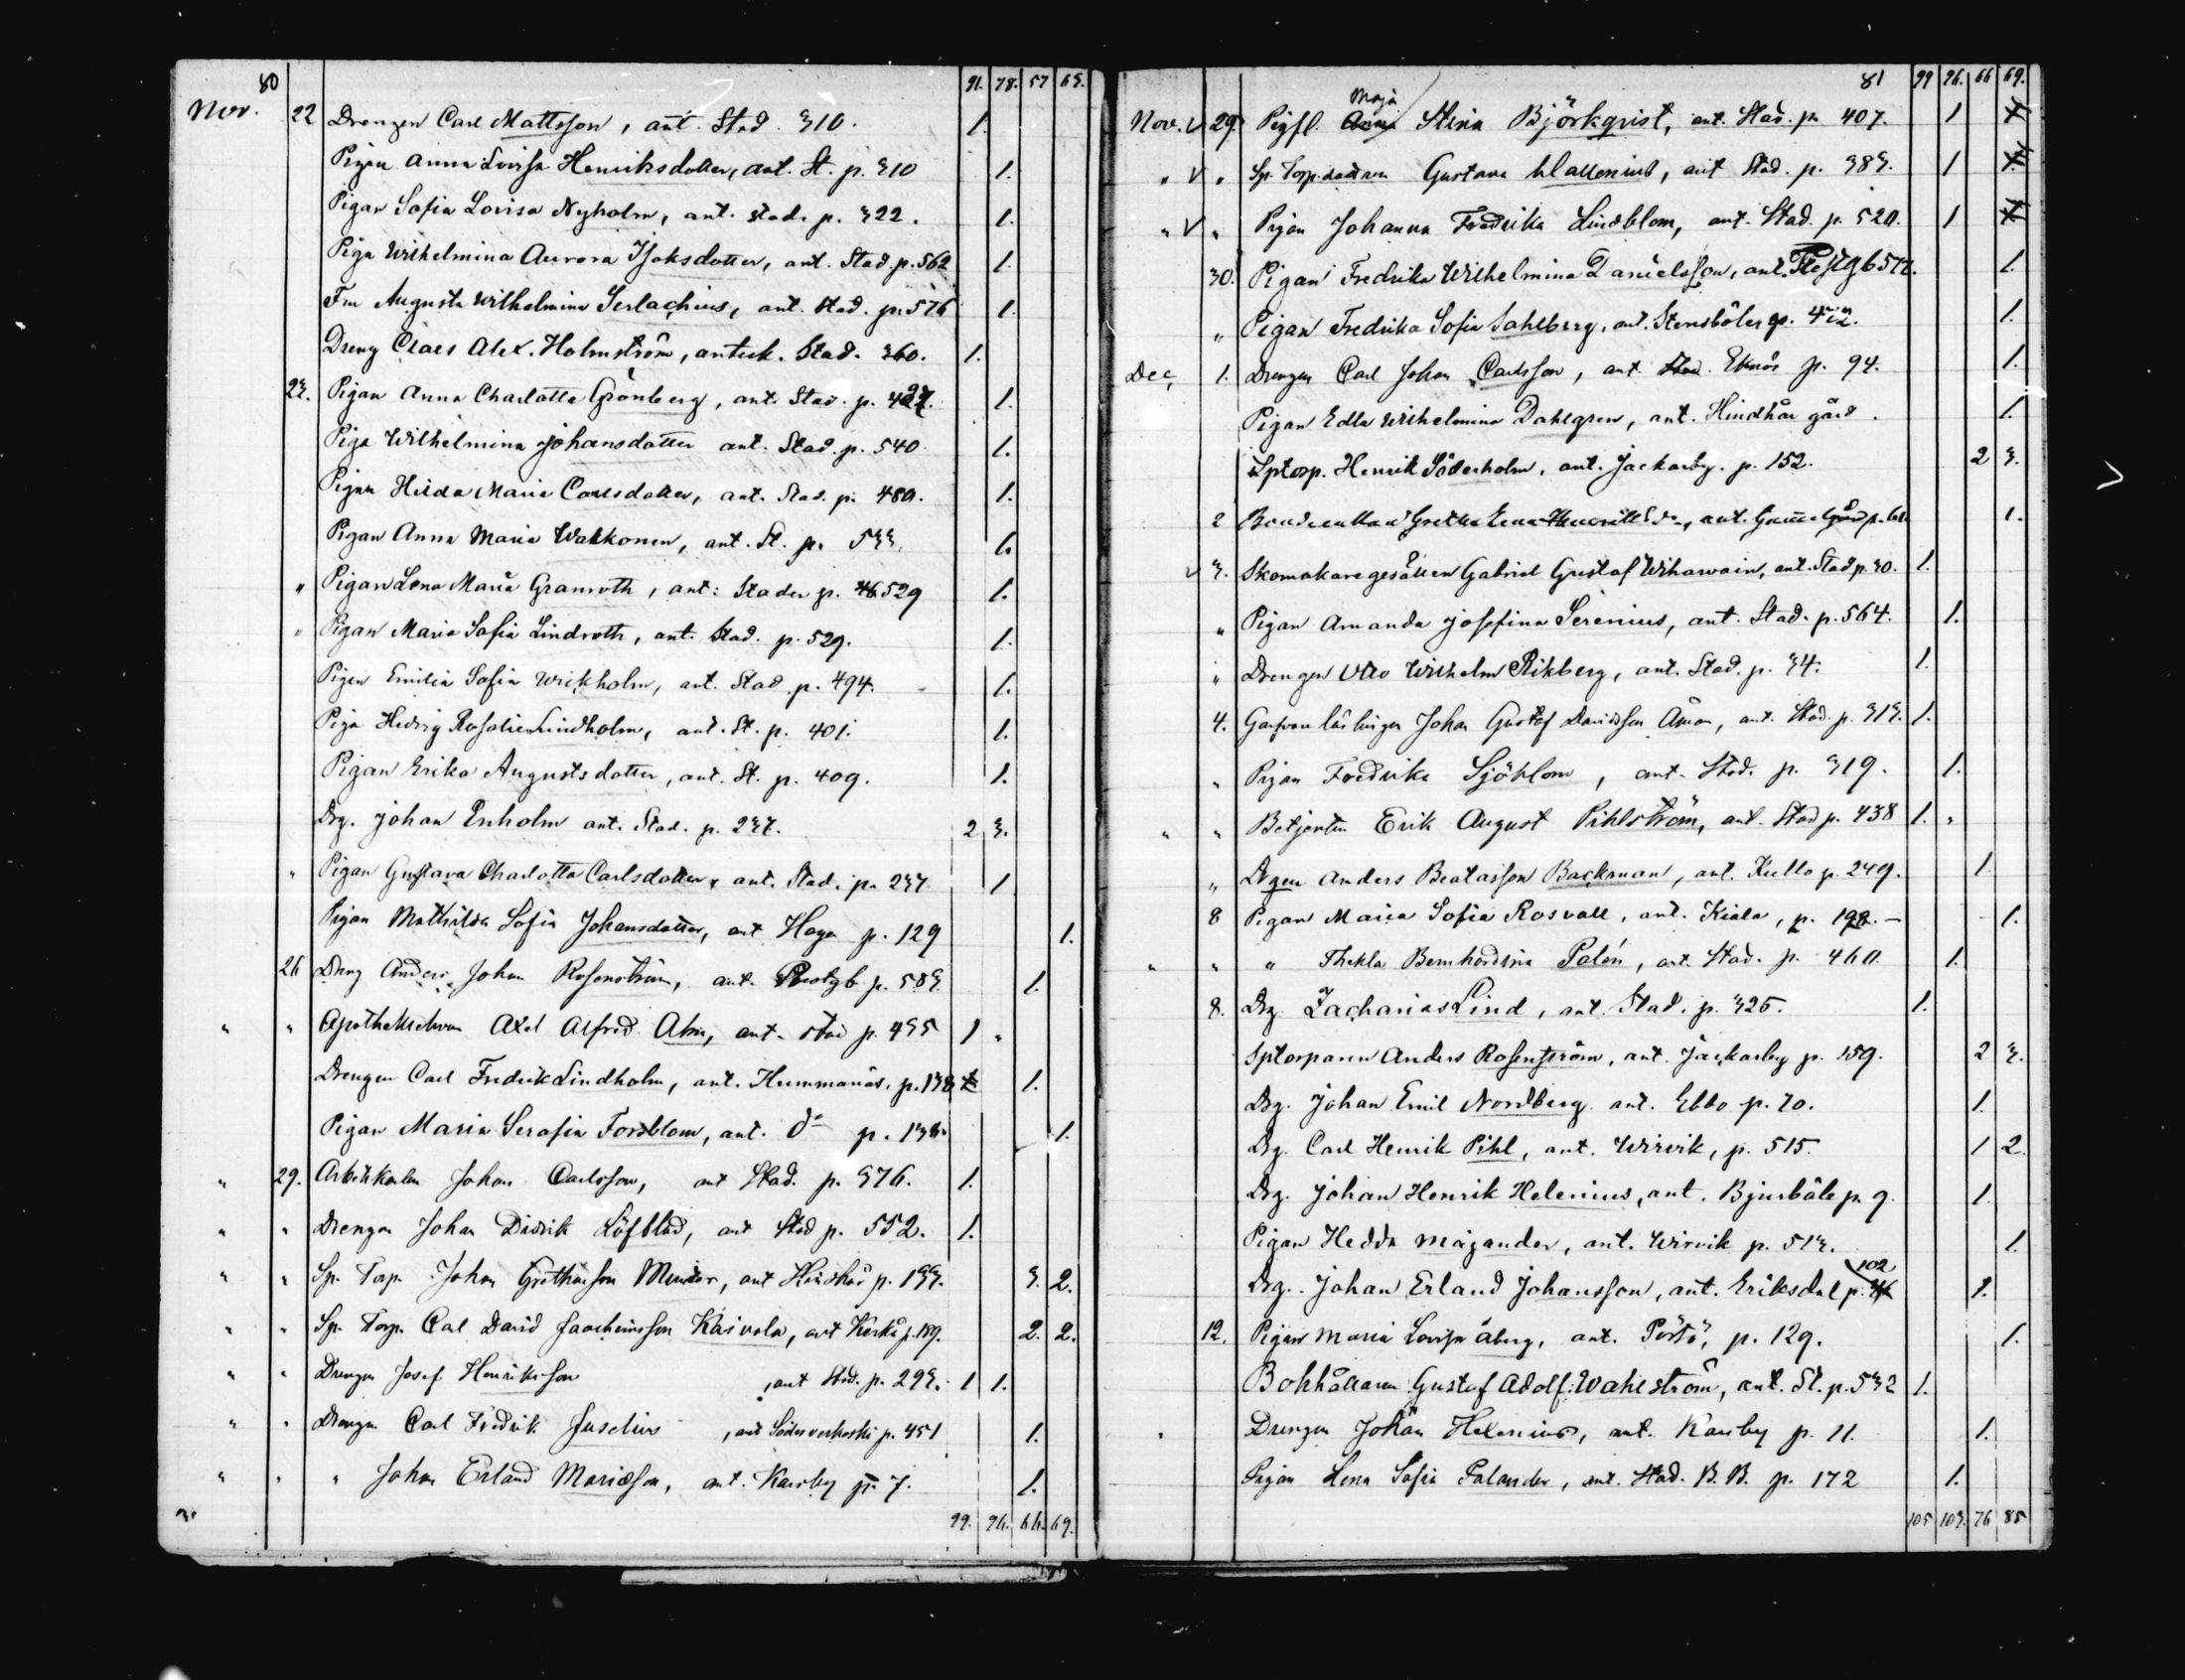 80 91. 78. 57 65.
Nov. 22 Drengen Carl Mattsson, ant. Stad 310. 1.
Pigan Anna Lovisa Henriksdotter, ant. St. p. 310 1.
Pigan Sofia Lovisa Nyholm, ant. stad. p. 322. 1.
Piga Wilhelmina Aurora Isaksdotter, ant. Stad. p. 562 1.
Fru Augusta Wilhelmina Serlachius, ant. Stad. p. 576 1.
Dreng Claes Alex. Holmström, anteck. Stad. 360. 1.
23. Pigan Anna Charlotta Grönberg, ant. Stad. p. 1.
Piga Wilhelmina Johansdotter ant. Stad. p. 540 1.
Pigan Hilda Maria Carlsdotter, ant. Stad. p. 480. 1.
Pigan Anna Maria Wakkonen, ant. St. p. 533. 1.
" Pigan Lena Maria Granroth, ant: Staden p. 529 1.
" Pigan Maria Sofia Lindroth, ant. Stad. p. 529. 1.
Pigan Emilia Sofia Wickholm, ant. Stad. p. 494. 1.
Piga Hedvig Rosalie Lindholm, ant. St. p. 401. 1.
Pigan Erika Augustsdotter, ant. St. p. 409. 1.
Drg. Johan Enholm ant. Stad. p. 237. 2 3.
" Pigan Gustava Charlotta Carlsdotter, ant. Stad. p. 237 1
Pigan Mathilda Sofia Johansdotter, ant Haga p. 129 1.
26 Dreng Anders Johan Rosenström, ant. Prestgb p. 583 1.
" " Axel Alfred Alm, ant. stad p. 435 1 "
Drengen Carl Fredrik Lindholm, ant. Hummanäs. p. 138 1.
Pigan Maria Serafia Forsblom, ant. do p. 138. 1.
" 29. Arbetskarlen Johan Carlsson, ant Stad. p. 376. 1.
" " Drengen Johan Didrik Löfblad, ant Stad p. 552. 1.
" " Sp. Torp. Johan Grethasson, ant Hindhår p. 133. 3. 2.
" " Sp. Torp. Carl David Joachimsson Kaivola, ant p. 189. 2. 2.
" " Drengen Josef Henriksson, ant Stad. p. 293. 1 1.
" " Drengen Carl Fredrik Juselius, ant Söderveckoski p. 451 1.
" " " Johan Erland Mariæson, ant. Karsby p. 7. 1.
99. 96. 66. 69.
81 99 96. 66 69.
Maja
Nov. v 29 Pigfl. Anna Stina Björkqvist, ant. Stad. p. 407. 1 1
" v " Sp. Torp. Gustava Wallenius, ant Stad. p. 383. 1 1
" v " Pigan Johanna Fredrika Lindblom, ant. Stad. p. 520. 1 1
30. Pigan Fredrika Wilhelmina Danielsson, ant. Prestgb 572. 1.
" Pigan Fredrika Sofia Sahlberg, ant. Stensböle p. 1.
Dec, 1. Drengen Carl Johan Carlsson, ant Eknäs p. 94. 1.
Pigan Edla Wilhelmina Dahlgren, ant. Hindhår gård. 1.
Sptorp. Henrik Söderholm, ant. Jackarby. p. 152. 2 3.
2 Bondeenkan Gretha Lena, ant. Gammelgård p. 61. 1.
v 3. Skomakaregesällen Gabriel Gustaf Wihavain, ant. Stad p. 30. 1.
" Pigan Amanda Josefina Serenius, ant. Stad. p. 564. 1.
" Drengen Otto Wilhelm Rikberg, ant. Stad. p. 34. 1.
4. Johan Gustaf Davidsson Åman, ant. Stad. p. 313. 1.
" Pigan Fredrika Sjöblom, ant. Stad. p. 319. 1.
" " Betjenten Erik August Pihlström, ant. Stad p. 438 1. "
" Drgen Anders Beatasson Backman, ant. Kullo p. 249. 1.
8 Pigan Maria Sofia Rosvall, ant. Kiala, p. 198. 1.
" " " Thekla Bernhardina Palén, ant. Stad. p. 460. 1.
8. Drg. Zacharias Lind, ant. Stad. p. 325. 1.
Sptorparen Anders Rosenström, ant. Jackarby p. 159. 2 3.
Drg. Johan Emil Nordberg ant. Ebbo p. 70. 1.
Drg. Carl Henrik Pihl, ant. Wirvik, p. 515. 1 2
Drg. Johan Henrik Helenius, ant. Bjurböle p. 9. 1.
Pigan Hedda Majander, ant. Wirvik p. 513. 1.
102
Drg. Johan Erland Johansson, ant. Eriksdal p. 1.
12. Pigan Maria Lovisa Åberg, ant. Pörtö, p. 129. 1.
Bokhållaren Gustaf Adolf Wahlström, ant. St. p. 532 1.
" Drengen Johan Helenius, ant. Karsby p. 11. 1.
Pigan Lena Sofia Palander, ant. Stad. B. B. p. 172 1.
105 103. 76 85